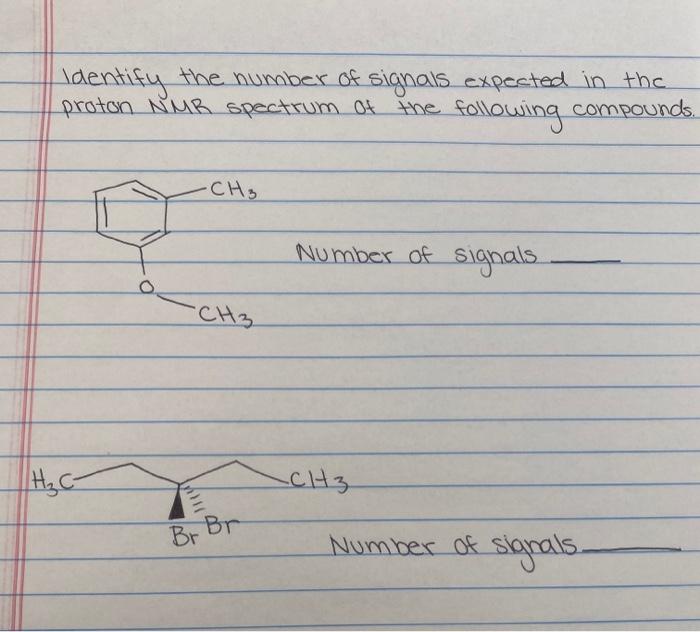 Identify the number of signals expected in the
proton NMR spectrum of the following compounds.
CH3
Number of signals
O
CH3
H3C
CH3
Br Br
Number of signals